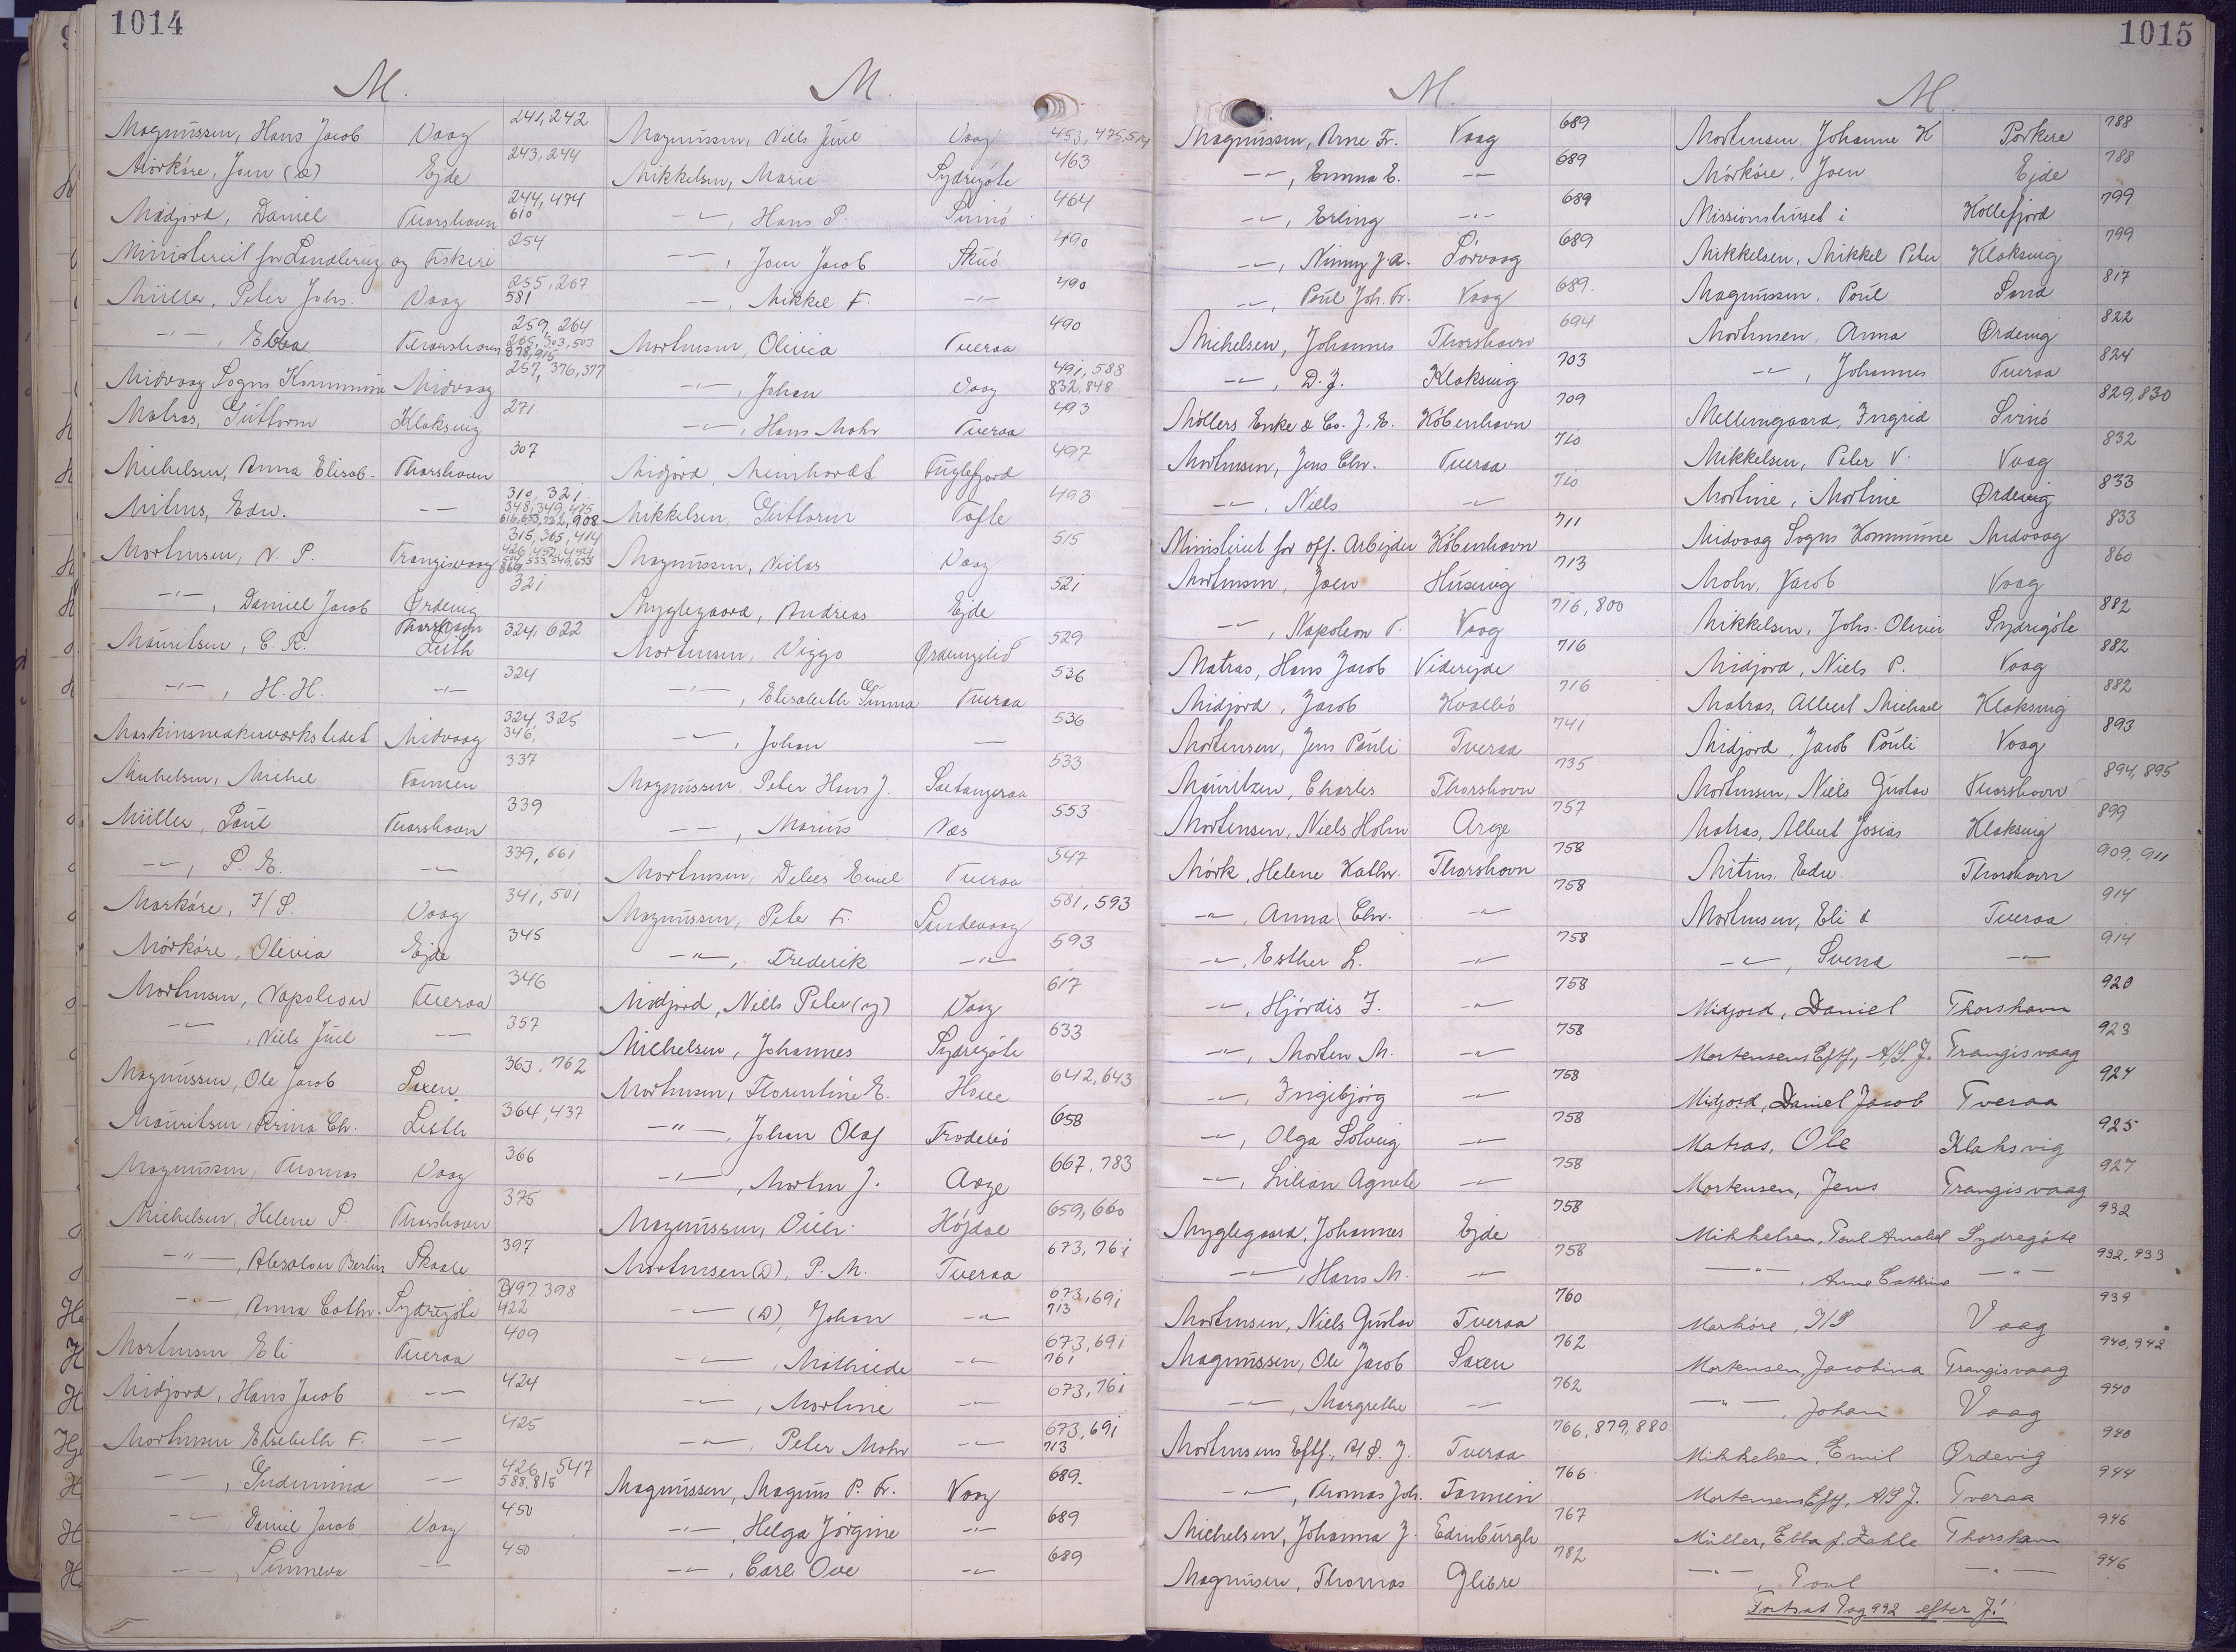 1014
M.
Magnussen, Hans Jacob Vaag 241, 242
Mörköre, Joen (d) Ejde 243, 244
Midjord, Daniel Thorshavn 244, 474 610
Ministeriet for Landbrug og Fiskeri 254
Müller, Peter Johs. Vaag 255, 267 581
-"-, Ebba Thorshavn 259, 264 265, 303, 503 878, 915
Midvaag Sogns Kommune Midvaag 257, 376, 377
Matras, Guttorm Klaksvig 271
Michelsen, Anna Elisab. Thorshavn 307
Mitens, Edw. -"- 310, 321 348, 349, 475 616, 653, 722, 908
Mortensen, N. P. Trangisvaag 315, 365, 414
-"-, Daniel Jacob Ørdevig 321
Mauritsen, C. R. Thorshavn Leith 324, 622
-"-, H. H. -"- 324
Maskinsnedkerværkstedet Midvaag 324, 325 346,
Michelsen, Michel Famien 337
Müller, Poul Thorshavn 339
-"-, P. E. -"- 339, 661
Morköre, I/S. Vaag 341, 501
Mörköre, Olivia Ejde 345
Mortensen, Napoleon Tveraa 346
-"-, Niels Juul -"- 357
Magnussen, Ole Jacob Saxen 363, 762
Mauritsen, Ch. Leith 364, 437
Magnussen, Thomas Vaag 366
Michelsen, Helene P. Thorshavn 375
-"-, Absalon Berlin Skaale 397
-"-, Anna Cathr. Sydregöte 397, 398 422
Mortensen Eli Tveraa 409
Midjord, Hans Jacob -"- 424
Mortensen Elsebeth F. -"- 425
-"-, Gudmina -"- 426, 547 588, 815
-"- Daniel Jacob Vaag 450
-"-, Sunneva -"- 450
M.
Magnussen, Niels Juul Vaag 453, 475, 514
Mikkelsen, Marie Sydregöte 463
-"-, Hans P. Svinö 464
-"-, Joen Jacob Skuö 490
-"-, Mikkel F. -"- 490
Mortensen, Olivia Tveraa 490
-"-, Johan Vaag 491, 588 832, 848
-"-, Hans Mohr Tveraa 493
Midjord, Meinhardt Fuglefjord 497
Mikkelsen, Guttorm Tofte 493
Magnussen, Niclas Vaag 515
Myglegaard, Andreas Ejde 521
Mortensen, Viggo 529
-"-, Elisabeth Sunna Tveraa 536
-"-, Johan -"- 536
Magnussen Peter Hans J. Saltangeraa 533
-"-, Marius Næs 553
Mortensen, Emil Tveraa 547
Magnussen, Peter F. Sandevaag 581, 593
-"-, Frederik -"- 593
Midjord, Niels Peter (y) Vaag 617
Michelsen, Johannes Sydregöte 633
Mortensen, Florentine E. 642, 643
-"-, Johan Olaf Frodebö 658
-"-, Morten J. Arge 667, 783
Magnussen, Högdal 659, 660
Mortensen (D), P. M. Tveraa 673, 761
-"- (D), Johan -"- 673, 691 713
-"-, Mathilde -"- 673, 691 761
-"-, Mortine -"- 673, 761
-"-, Peter Mohr -"- 673, 691 713
Magnussen, Magnus P. Fr. Vaag 689.
-"-, Helga Jörgine -"- 689
-"-, Carl Ove -"- 689
1015
M.
Magnussen, Arne Fr. Vaag 689
-"-, Emma E. -"- 689
-"-, Erling -"- 689
-"-, Ninny J. A. Sörvaag 689
-"-, Poul Joh. Fr. Vaag 689.
Michelsen, Johannes Thorshavn 694
-"-, D. J. Klaksvig 703
Möllers Enke & Co. J. E. Köbenhavn 709
Mortensen, Jens Chr. Tveraa 710
-"-, Niels -"- 710
Ministeriet for off. Arbejder Köbenhavn 711
Mortensen, Joen Husevig 713
-"-, Napoleon F. Vaag 716, 800
Matras, Hans Jacob Viderejde 716
Midjord, Jacob Hvalbö 716
Mortensen, Jens Pauli Tveraa 741
Mauritzen, Charles Thorshavn 735
Mortensen, Niels Holm Arge 757
Mörk, Helene Kathr. Thorshavn 758
-"-, Anna Chr. -"- 758
-"-, Esther L. -"- 758
-"-, Hjördis J. -"- 758
-"-, Morten M. -"- 758
-"-, Ingibjörg -"- 758
-"-, Olga Solveig -"- 758
-"-, Lilian Agnete -"- 758
Myglegaard, Johannes Ejde 758
-"-, Hans M. -"- 758
Mortensen, Niels Gustav Tveraa 760
Magnussen, Ole Jacob Saxen 762
-"-, Margrethe -"- 762
Mortensens Eftf., A/S. J. Tveraa 766, 879, 880
-"-, Thomas Joh. Famien 766
Michelsen, Johanna J. Edinburgh 767
Magnussen, Thomas Glibre 782
M.
Mortensen, Johanne K Porkere 788
Mörköre, Joen Ejde 788
Missionshuset i Kollefjord 799
Mikkelsen, Mikkel Peter Klaksvig 799
Magnussen, Poul Sand 817
Mortensen, Anna Ørdevig 822
-"-, Johannes Tveraa 824
Mellemgaard, Ingrid Svinö 829, 830
Mikkelsen, Peter V. Vaag 832
Mortine, Mortine Ørdevig 833
Midvaag Sogns Kommune Midvaag 833
Mohr, Jacob Vaag 860
Mikkelsen, Johs. Oliver Sydregöte 882
Midjord, Niels P. Vaag 882
Matras, Albert Michael Klaksvig 882
Midjord, Jacob Pauli Vaag 893
Mortensen, Niels Gustav Thorshavn 894, 895
Matras, Albert Josias Klaksvig 899
Mitens, Edw. Thorshavn 909, 911
Mortensen, Eli & Tveraa 914
-"-, Svend -"- 914
Midjord, Daniel Thorshavn 920
Mortensens Eftf., A/S. J. Trangisvaag 923
Midjord, Daniel Jacob Tveraa 924
Matras, Ole Klaksvig 925
Mortensen, Jens Trangisvaag 927
Mikkelsen, Poul Arnold Sydregöte 932
-"-, Anne Cathrine -"- 932, 933
Morköre, I/S Vaag 939
Mortensen, Jacobina Trangisvaag 940, 942
-"-, Johan Vaag 940
Mikkelsen, Emil Ørdevig 940
Mortensens Eftf., A/S J. Tveraa 944
Müller, Ebba f. Zahle Thorshavn 946
-"-, Poul -"- 946
Fortsat Pag 992 efter J!